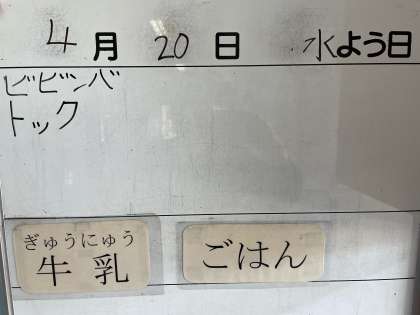 4月20日 水よう日
ビビンバ
トック
ぎゅうにゅう
牛乳
ごはん